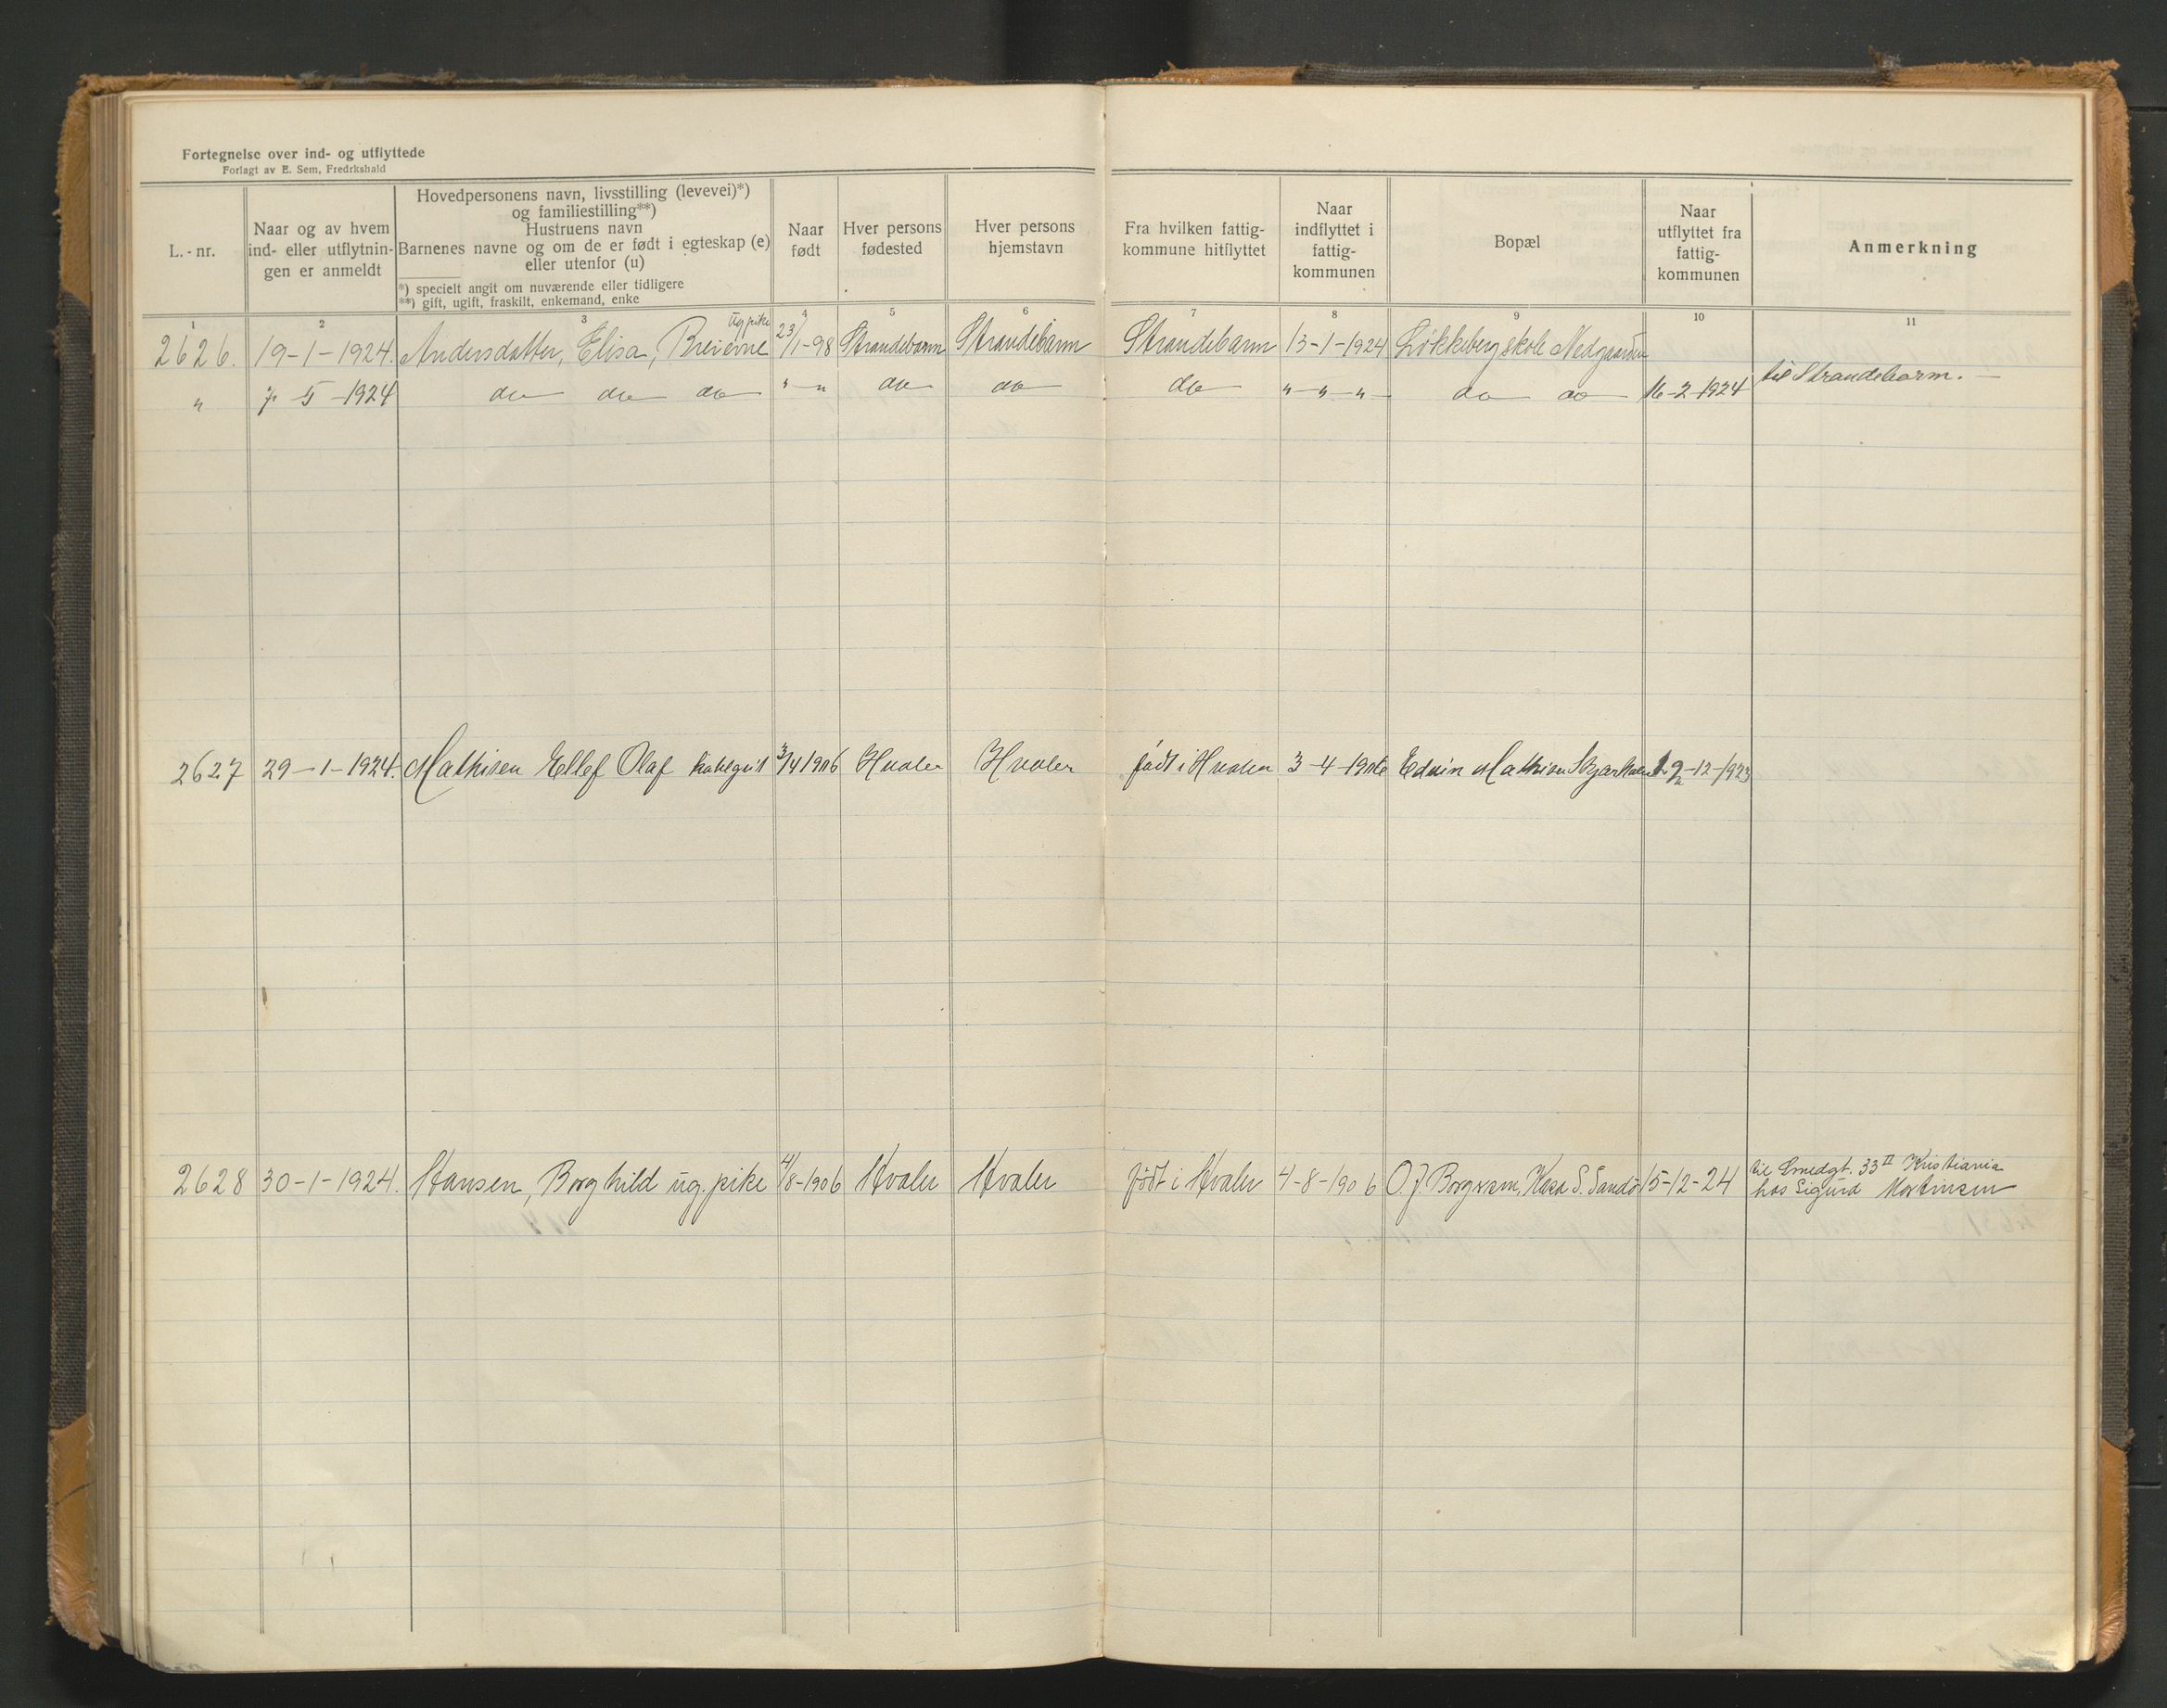 Fortegnelse over ind- og utflyttede
Forlagt av E. Sem, Fredrkshald
L.-nr.
Naar og av hvem
ind- eller utflytnin-
gen er anmeldt
Hovedpersonens navn, livsstilling (levevei)*)
og familiestilling**)
Hustruens navn
Barnenes navne og om de er født i egteskap (e)
eller utenfor (u)
*) specielt angit om nuværende eller tidligere
**) gift, ugift, fraskilt, enkemand, enke
Naar
født
Hver persons
fødested
Hver persons
hjemstavn
Fra hvilken fattig-
kommune hitflyttet
Naar
indflyttet i
fattig-
kommunen
Bopæl
Naar
utflyttet fra
fattig-
kommunen
Anmerkning
1 2 3 4 5 6 7 8 9 10 11
2626. 19-1-1924. Andersdatter, Elisa, ug pike 23/1-98 Strandebarm Strandebarm Strandebarm 13-1-1924 Løkkeberg skole Nedgaarden
" 7-5-1924 do do do " - " do do do " - " - " - do do 16-2-1924 til Strandebarm. -
2627 29-1-1924. Mathisen Ellef Olaf 3/4 1906 Hvaler Hvaler født i Hvaler 3-4-1906 Edvin Mathisen -12-1923
2628 30-1-1924. Hansen, Borghild ug. pike 4/8-1906 Hvaler Hvaler født i Hvaler 4-8-1906 O. J. S. Sandø 15-12-24 til Smedgt. 33 II Kristiania
hos Sigurd Mortinsen